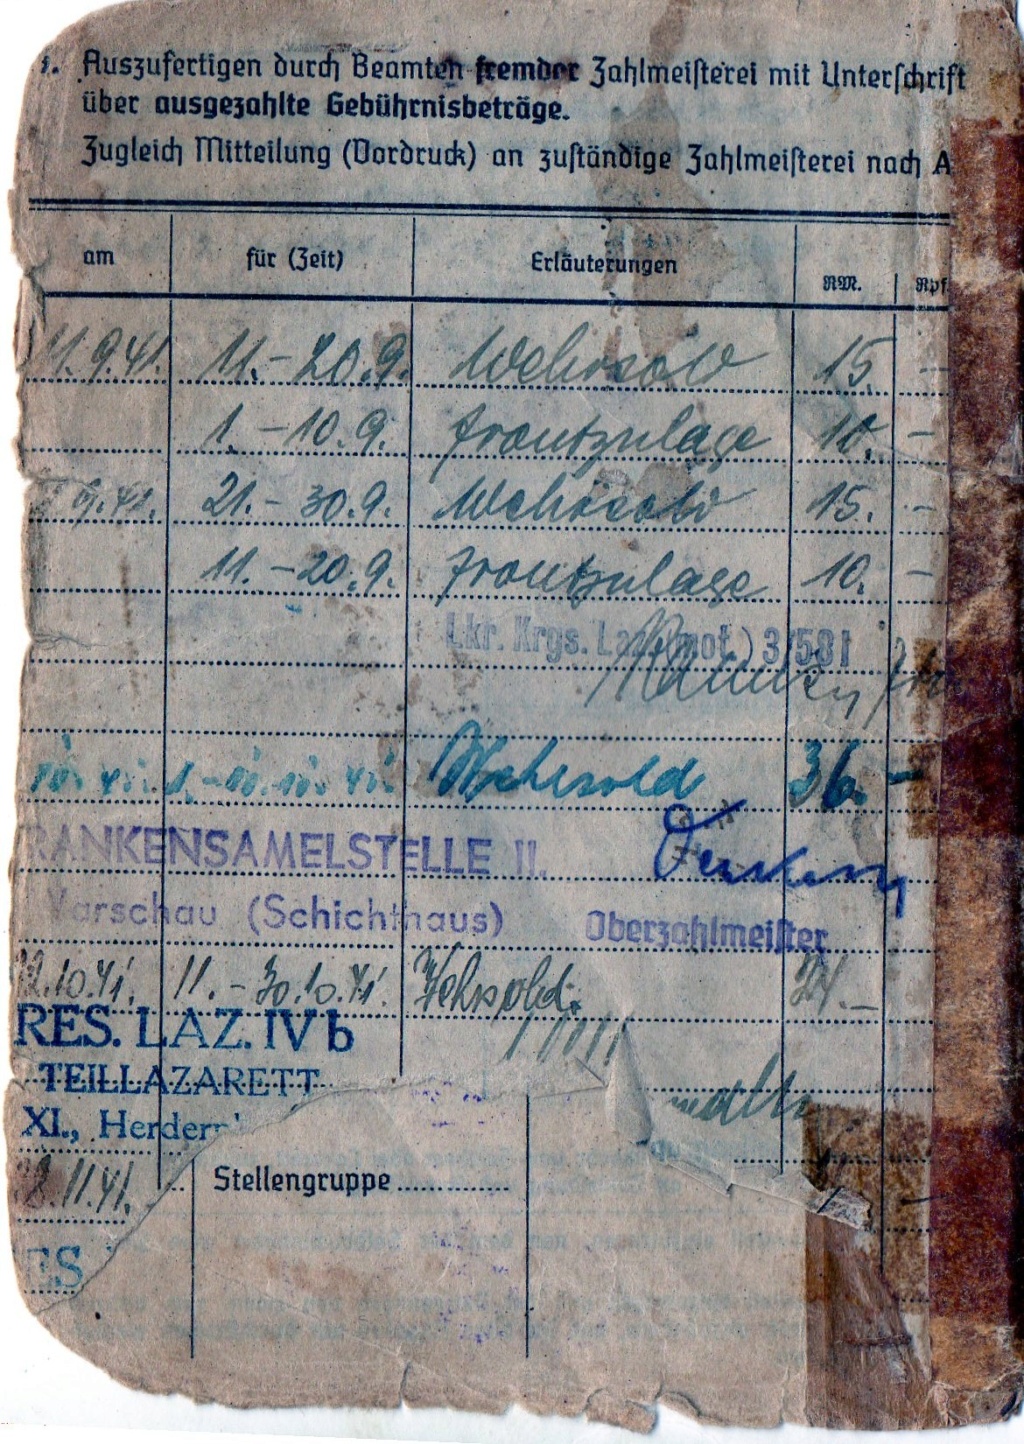 1. Auszufertigen durch Beamten fremder Zahlmeisterei mit Unterschrift
über ausgezahlte Gebührnisbeträge.
Zugleich Mitteilung (Vordruck) an zuständige Zahlmeisterei nach A
am für (Zeit) Erläuterungen RM. Rpf.
11.9.41. 11.-20.9. Wehrsold 15. -
1.-10.9. Frontzulage 10. -
9.41. 21.-30.9. Wehrsold 15. -
11.-20.9. Frontzulage 10. -
Lkr. Krgs. Laz. (mot.) 3/581
Wehrsold 36. -
RANKENSAMELSTELLE II.
Warschau (Schichthaus) Oberzahlmeister
12.10.41. 11.-30.10.41. Wehrsold. 24. -
RES. LAZ. IVb
TEILLAZARETT
XI., Herdern
8.11.41.
Stellengruppe
ES